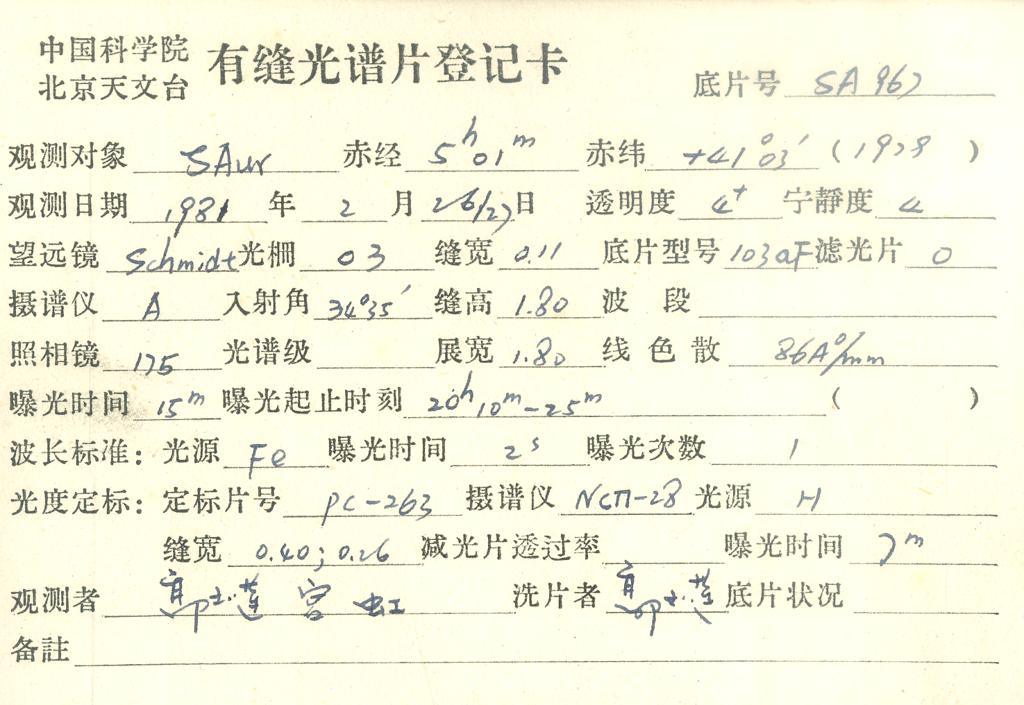 中国科学院
北京天文台
有缝光谱片登记卡
底片号 SA 967
观测对象 SAur 赤经 5h01m 赤纬 +41°03′ (1928)
观测日期 1981 年 2 月 26/27 日 透明度 4+ 宁静度 4
望远镜 Schmidt 光栅 03 缝宽 0.11 底片型号 103aF 滤光片 0
摄谱仪 A 入射角 34°35′ 缝高 1.80 波段
照相镜 175 光谱级 展宽 1.80 线色散 86A°/mm
曝光时间 15m 曝光起止时刻 20h10m-25m ( )
波长标准: 光源 Fe 曝光时间 2s 曝光次数 1
光度定标: 定标片号 PC-263 摄谱仪 NCΠ-28 光源 H
缝宽 0.40; 0.26 减光片透过率 曝光时间 7m
观测者 宫虹 洗片者 底片状况
备註